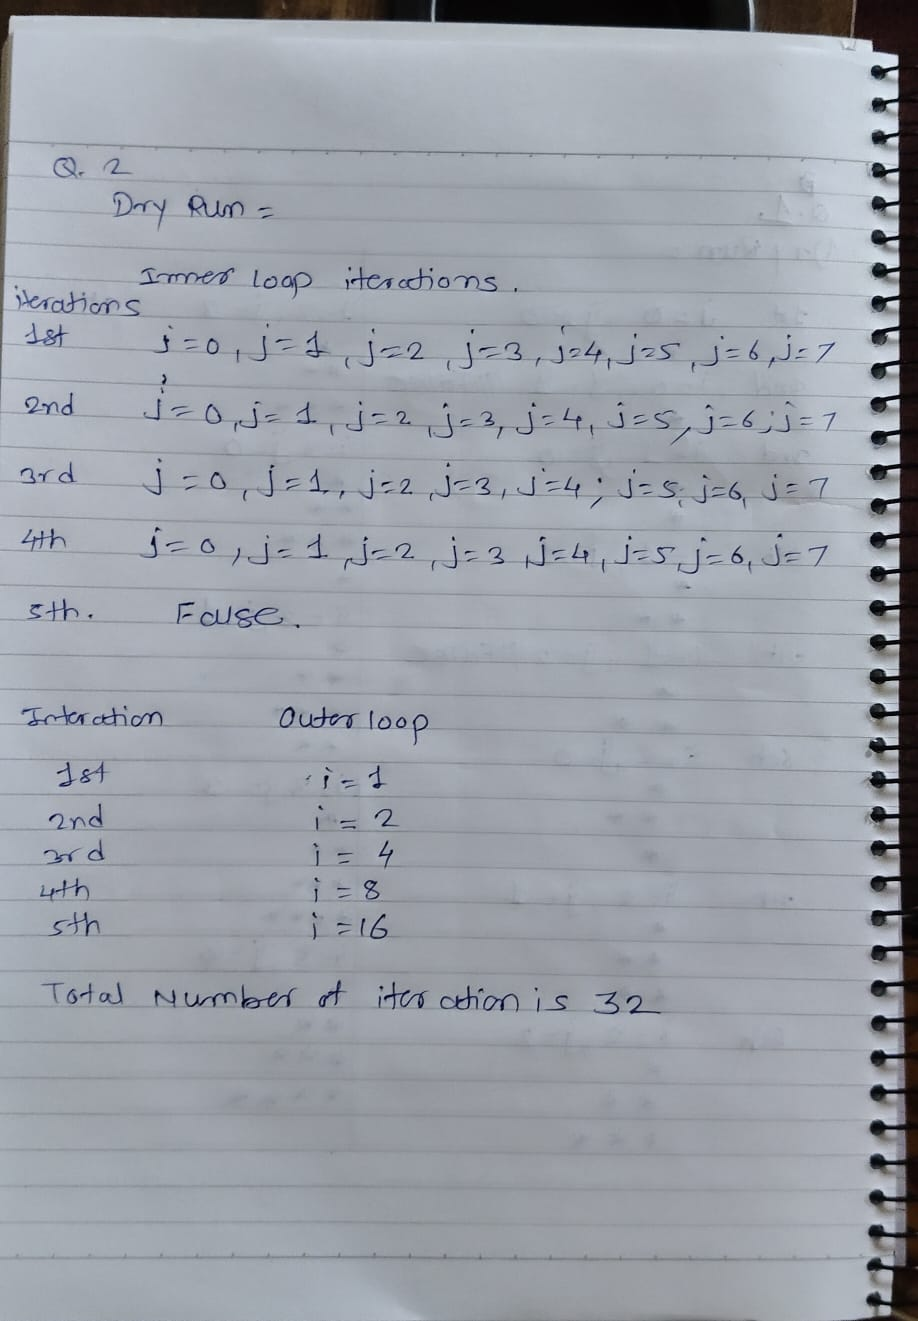 Q. 2
Dry Run =
Inner loop iterations.
iterations
1st j=0, j=1, j=2, j=3, j=4, j=5, j=6, j=7
2nd j=0, j=1, j=2, j=3, j=4, j=5, j=6, j=7
3rd j=0, j=1, j=2, j=3, j=4, j=5, j=6, j=7
4th j=0, j=1, j=2, j=3, j=4, j=5, j=6, j=7
5th. False.
Interation Outer loop
1st i=1
2nd i=2
3rd i=4
4th i=8
5th i=16
Total Number of iteration is 32